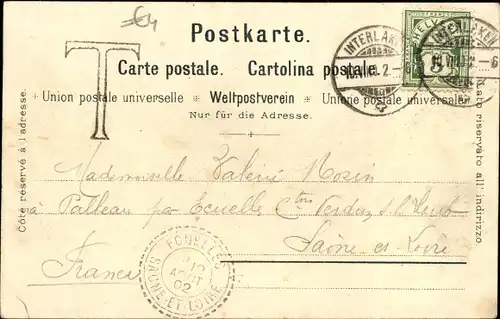 €4
Postkarte.
Carte postale. Cartolina postale.
Union postale universelle * Weltpostverein * Unione postale universale
Nur für die Adresse.
Côté réservé à l'adresse.
Lato riservato all' indirizzo
T
HELVETIA
5
INTERLAKEN
INTERLAKEN
Mademoiselle Valérie Rosin
à Palleau par Ecuelle Cton Verdun s/l Doubs
Saône et Loire
France
ECUELLES
AOUT
02
SAONE-ET-LOIRE